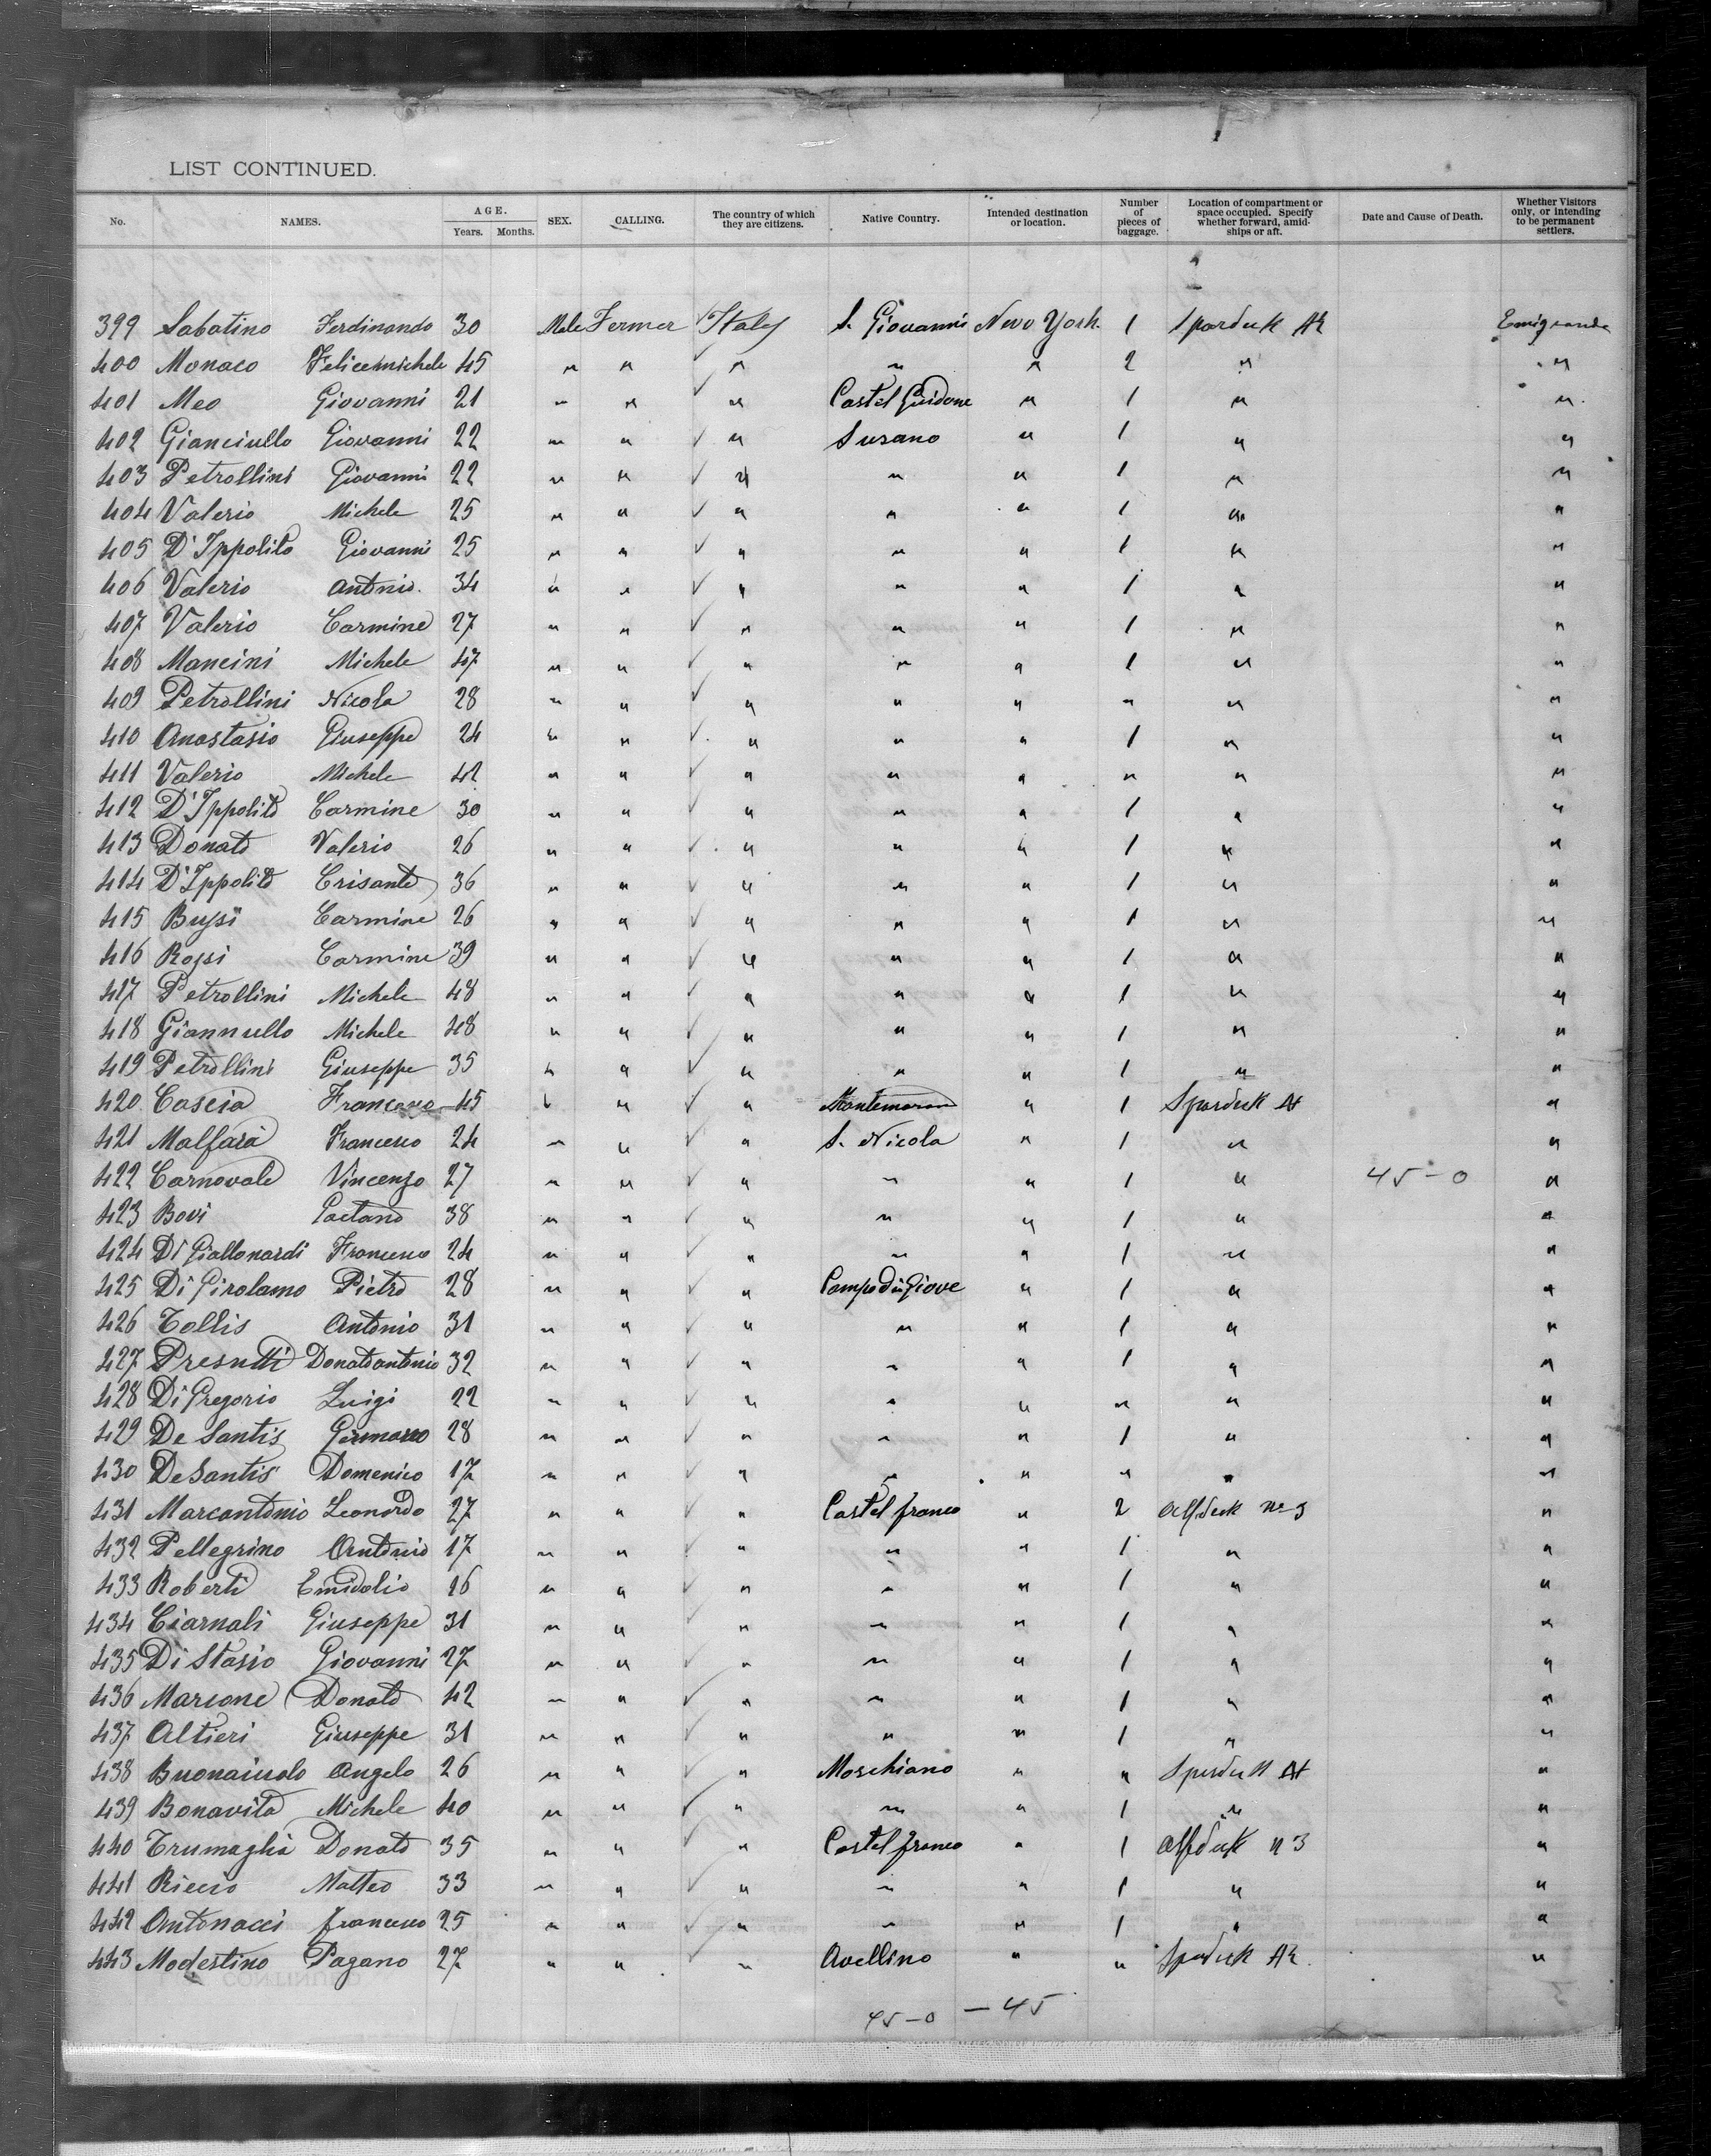 LIST CONTINUED.
No. NAMES. AGE. Years. Months. SEX. CALLING. The country of which they are citizens. Native Country. Intended destination or location. Number of pieces of baggage. Location of compartment or space occupied. Specify whether forward, amidships or aft. Date and Cause of Death. Whether Visitors only, or intending to be permanent settlers.
399 Sabatino Ferdinando 30 Male Fermer Italy S. Giovanni New York 1 Spardeck A2 Emigrande
400 Monaco Felicemichele 45 " " " " " 2 " "
401 Meo Giovanni 21 " " " Castel Guidone " 1 " "
402 Gianciullo Giovanni 22 " " " Surano " 1 " "
403 Petrollini Giovanni 22 " " " " " 1 " "
404 Valerio Michele 25 " " " " " 1 " "
405 D'Ippolito Giovanni 25 " " " " " 1 " "
406 Valerio Antonio 34 " " " " " 1 " "
407 Valerio Carmine 27 " " " " " 1 " "
408 Mancini Michele 47 " " " " " 1 " "
409 Petrollini Nicola 28 " " " " " " " "
410 Anastasio Giuseppe 24 " " " " " 1 " "
411 Valerio Michele 42 " " " " " " " "
412 D'Ippolito Carmine 30 " " " " " 1 " "
413 Donato Valerio 26 " " " " " 1 " "
414 D'Ippolito Crisante 36 " " " " " 1 " "
415 Bussi Carmine 26 " " " " " 1 " "
416 Rossi Carmine 39 " " " " " 1 " "
417 Petrollini Michele 48 " " " " " 1 " "
418 Giannullo Michele 48 " " " " " 1 " "
419 Petrollini Giuseppe 35 " " " " " 1 " "
420 Cascia Francesco 45 " " " Montemarano " 1 Spardeck "
421 Malfara Francesco 24 " " " S. Nicola " 1 " "
422 Carnovale Vincenzo 27 " " " " " 1 " 45-0 "
423 Bovi Gaetano 38 " " " " " 1 " "
424 Di Giallonardi Francesco 24 " " " " " 1 " "
425 Di Girolamo Pietro 28 " " " Campo di Giove " 1 " "
426 Tollis Antonio 31 " " " " " 1 " "
427 Presutti Donatoantonio 32 " " " " " 1 " "
428 Di Gregorio Luigi 22 " " " " " " " "
429 De Santis Gennaro 28 " " " " " 1 " "
430 De Santis Domenico 17 " " " " " " " "
431 Marcantonio Leonardo 27 " " " Castelfranco " 2 Aftdeck No 3 "
432 Pellegrino Antonio 17 " " " " " 1 " "
433 Roberti Emidolio 26 " " " " " 1 " "
434 Ciarnali Giuseppe 31 " " " " " 1 " "
435 Di Stasio Giovanni 27 " " " " " 1 " "
436 Marcone Donato 42 " " " " " 1 " "
437 Altieri Giuseppe 31 " " " " " 1 " "
438 Buonaiuolo Angelo 26 " " " Moschiano " " Spardeck "
439 Bonavita Michele 40 " " " " " 1 " "
440 Trumaglia Donato 35 " " " Castelfranco " 1 Aftdeck n 3 "
441 Riccio Matteo 33 " " " " " 1 " "
442 Antonacci Francesco 25 " " " " " 1 " "
443 Modestino Pagano 27 " " " Avellino " " Spardeck A2 "
45-0 — 45